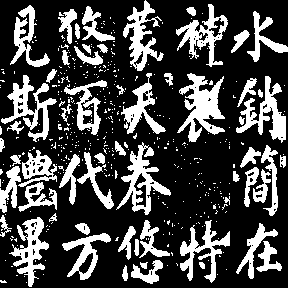 水銷簡在
神衷特
蒙天眷悠
悠百代方
見斯禮畢